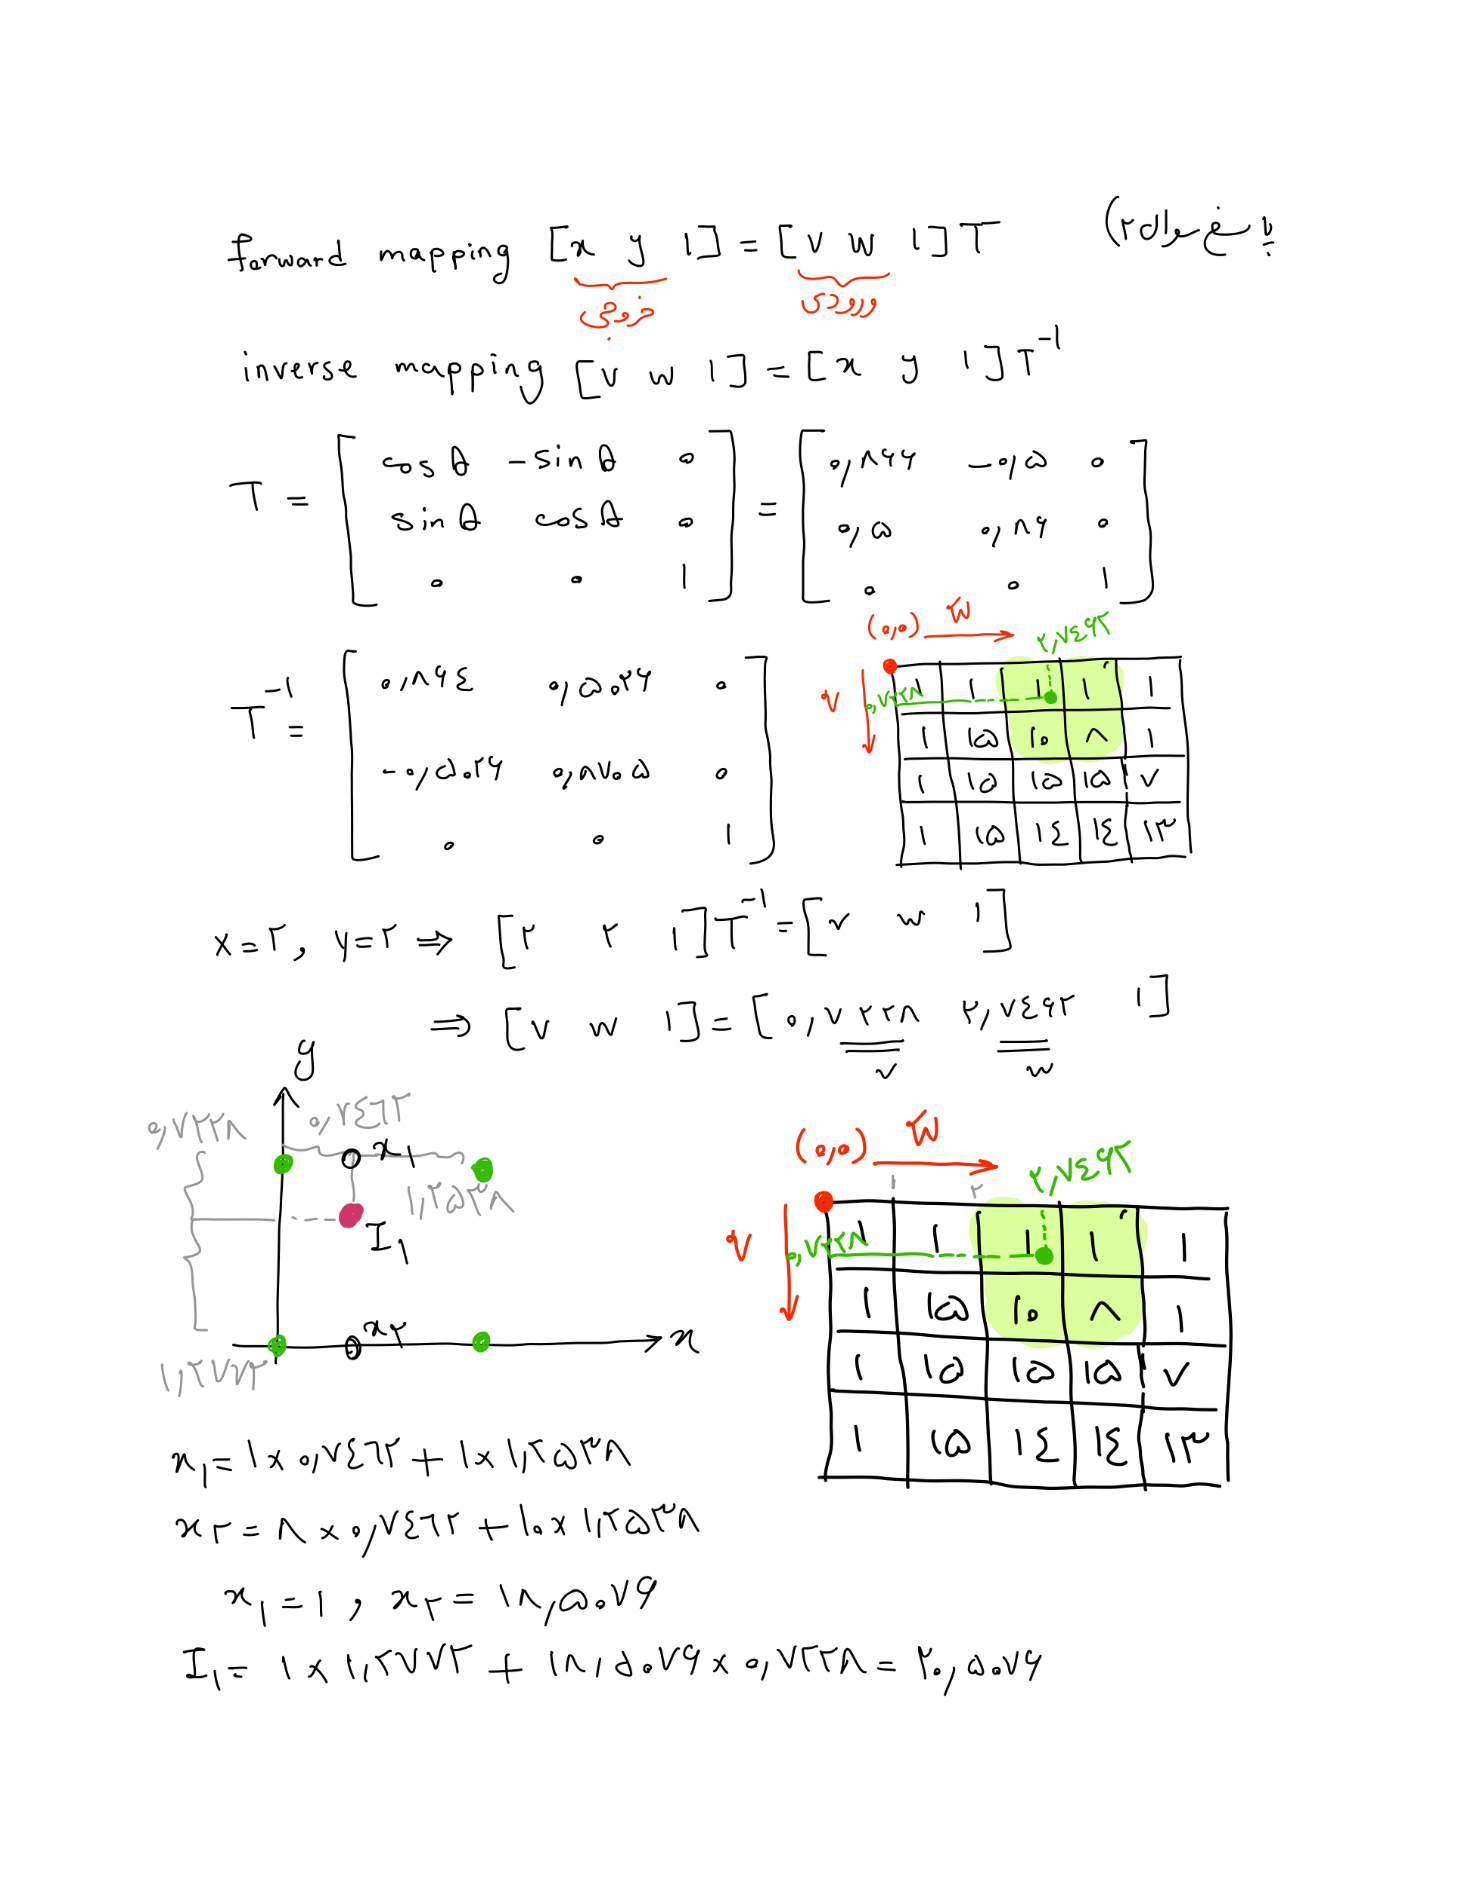 پاسخ سوال ۲)
forward mapping [x y 1] = [v w 1] T
خروجی ورودی
inverse mapping [v w 1] = [x y 1] T⁻¹
T = [cosθ -sinθ 0 = [۰,۸۶۶ -۰,۵ ۰
sinθ cosθ 0 ۰,۵ ۰,۸۶ ۰
0 0 1] ۰ ۰ ۱]
(۰,۰) w ۲,۷٤۶۲
v ۰,۷۲۲۸
T⁻¹ = [۰,۸۶٤ ۰,۵۰۲۶ ۰
-۰,۵۰۲۶ ۰,۸۷۰۵ ۰
۰ ۰ ۱]
۱ ۱ ۱ ۱ ۱
۱ ۱۵ ۱۰ ۸ ۱
۱ ۱۵ ۱۵ ۱۵ ۷
۱ ۱۵ ۱٤ ۱٤ ۱۳
x=۲, y=۲ ⇒ [۲ ۲ ۱] T⁻¹ = [v w ۱]
⇒ [v w ۱] = [۰,۷۲۲۸ ۲,۷٤۶۲ ۱]
v w
y
۰,۷۲۲۸ ۰,۷٤٦۲ x₁
۱,۲۵۳۸
I₁
x₂ x
۱,۲۷۷۲
(۰,۰) w ۲,۷٤۶۲
۱ ۲
v ۰,۷۲۲۸
۱ ۱ ۱ ۱ ۱
۱ ۱۵ ۱۰ ۸ ۱
۱ ۱۵ ۱۵ ۱۵ ۷
۱ ۱۵ ۱٤ ۱٤ ۱۳
x₁ = ۱ × ۰,۷٤٦۲ + ۱ × ۱,۲۵۳۸
x۲ = ۸ × ۰,۷٤٦۲ + ۱۰ × ۱,۲۵۳۸
x₁ = ۱ , x۲ = ۱۸,۵۰۷۶
I₁ = ۱ × ۱,۲۷۷۲ + ۱۸,۵۰۷۶ × ۰,۷۲۲۸ = ۲۰,۵۰۷۶